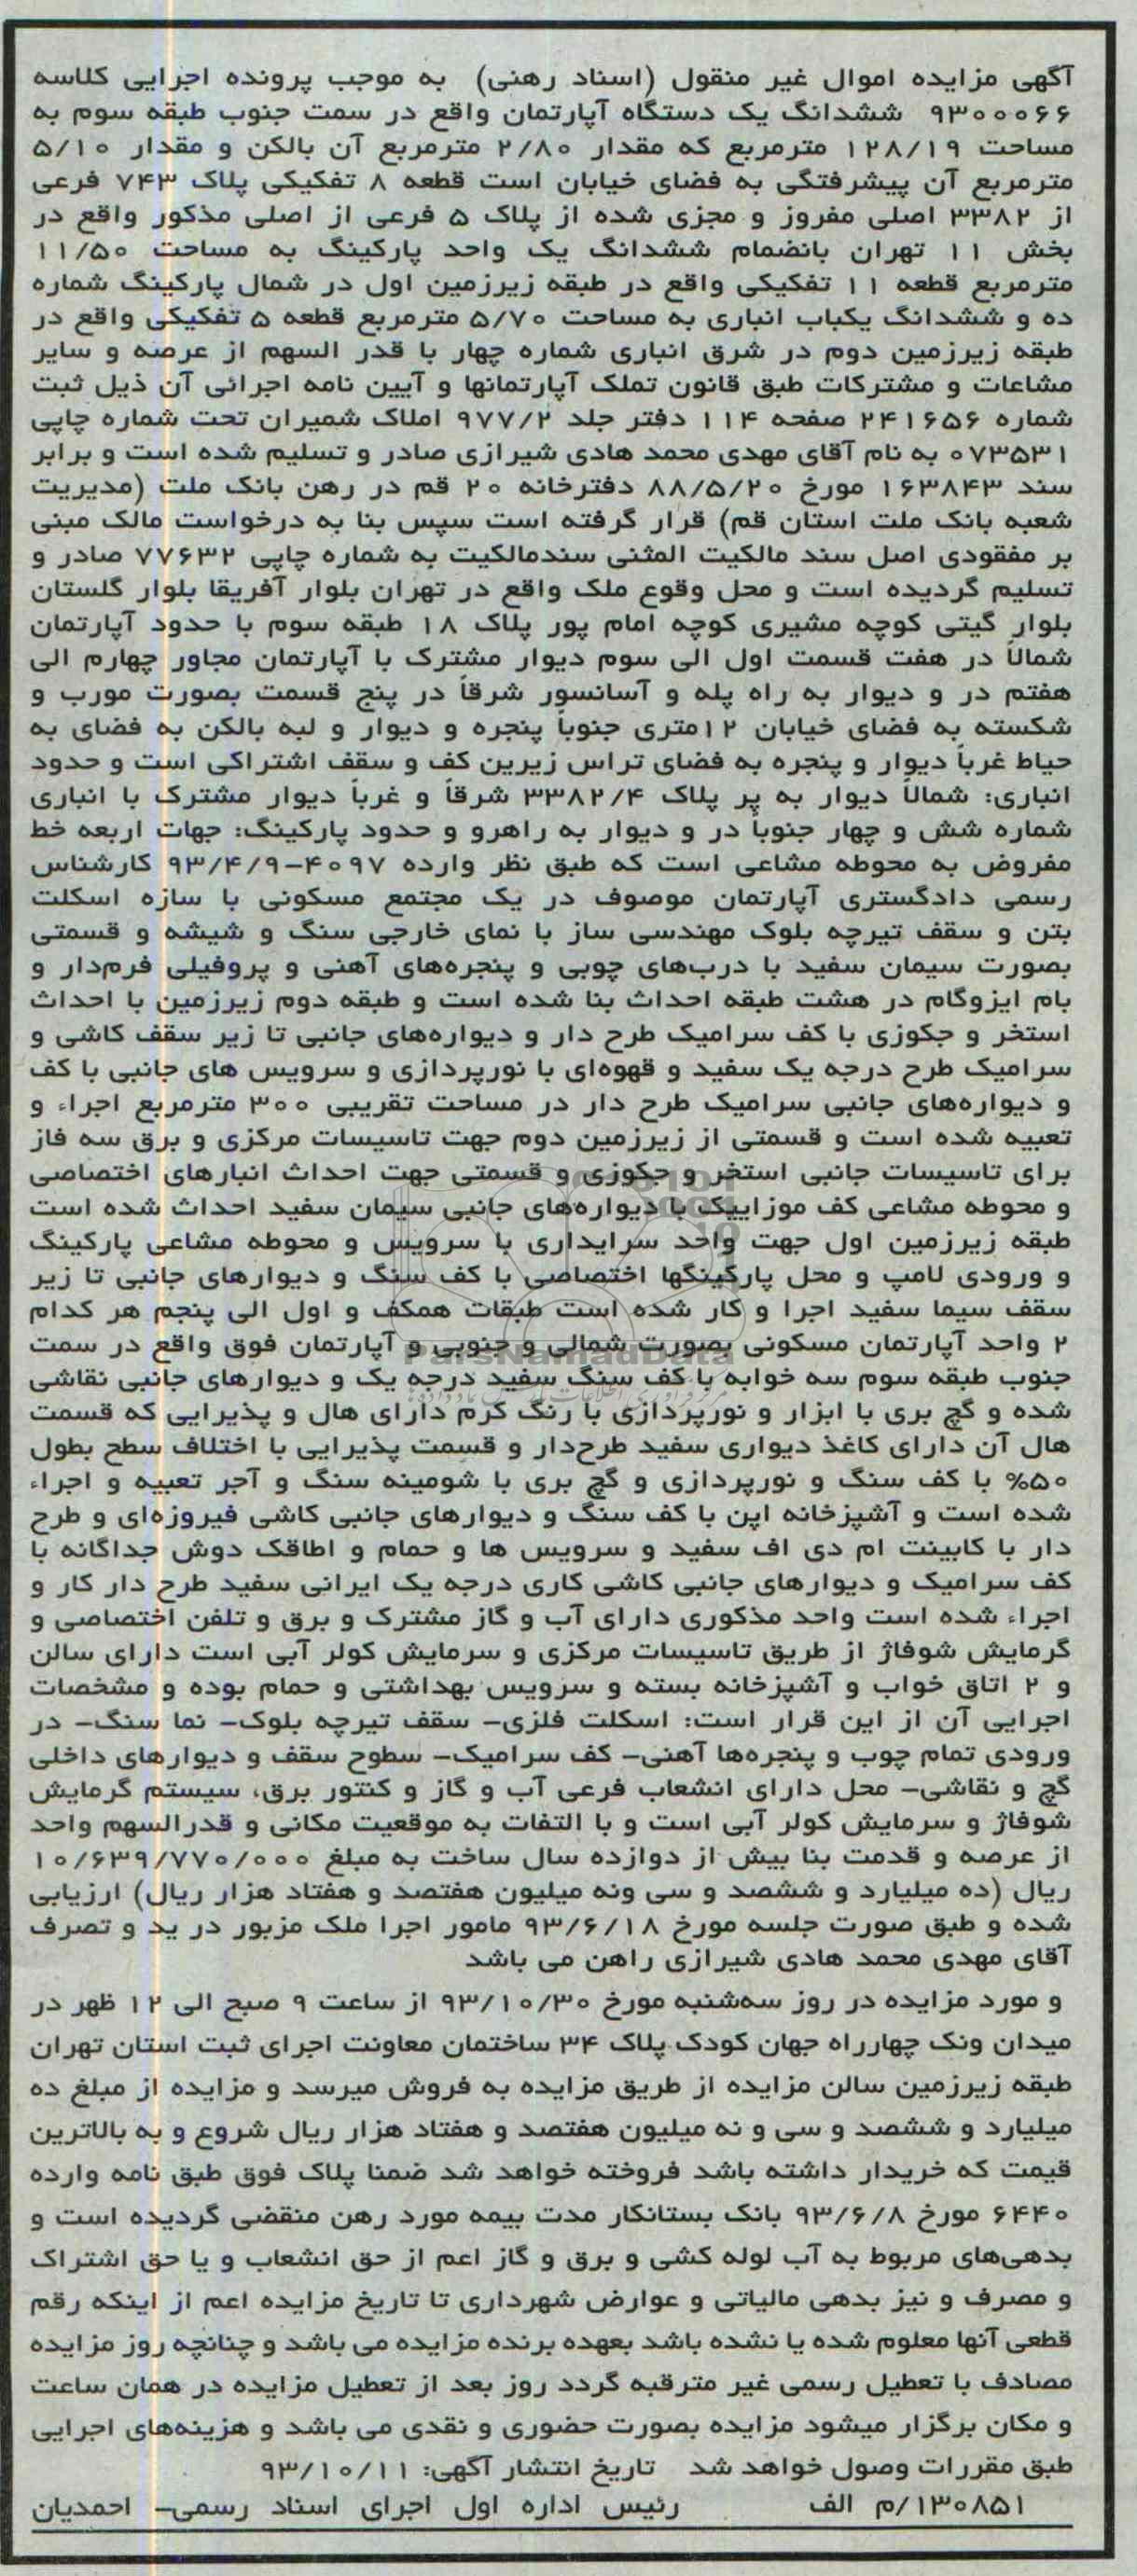 آگهی مزایده اموال غیر منقول (اسناد رهنی) به موجب پرونده اجرایی کلاسه
۹۳۰۰۰۶۶ ششدانگ یک دستگاه آپارتمان واقع در سمت جنوب طبقه سوم به
مساحت ۱۲۸/۱۹ مترمربع که مقدار ۲/۸۰ مترمربع آن بالکن و مقدار ۵/۱۰
مترمربع آن پیشرفتگی به فضای خیابان است قطعه ۸ تفکیکی پلاک ۷۴۳ فرعی
از ۳۳۸۲ اصلی مفروز و مجزی شده از پلاک ۵ فرعی از اصلی مذکور واقع در
بخش ۱۱ تهران بانضمام ششدانگ یک واحد پارکینگ به مساحت ۱۱/۵۰
مترمربع قطعه ۱۱ تفکیکی واقع در طبقه زیرزمین اول در شمال پارکینگ شماره
ده و ششدانگ یکباب انباری به مساحت ۵/۷۰ مترمربع قطعه ۵ تفکیکی واقع در
طبقه زیرزمین دوم در شرق انباری شماره چهار با قدر السهم از عرصه و سایر
مشاعات و مشترکات طبق قانون تملک آپارتمانها و آیین نامه اجرائی آن ذیل ثبت
شماره ۲۴۱۶۵۶ صفحه ۱۱۴ دفتر جلد ۹۷۷/۲ املاک شمیران تحت شماره چاپی
۰۷۳۵۳۱ به نام آقای مهدی محمد هادی شیرازی صادر و تسلیم شده است و برابر
سند ۱۶۳۸۴۳ مورخ ۸۸/۵/۲۰ دفترخانه ۲۰ قم در رهن بانک ملت (مدیریت
شعبه بانک ملت استان قم) قرار گرفته است سپس بنا به درخواست مالک مبنی
بر مفقودی اصل سند مالکیت المثنی سندمالکیت به شماره چاپی ۷۷۶۳۲ صادر و
تسلیم گردیده است و محل وقوع ملک واقع در تهران بلوار آفریقا بلوار گلستان
بلوار گیتی کوچه مشیری کوچه امام پور پلاک ۱۸ طبقه سوم با حدود آپارتمان
شمالاً در هفت قسمت اول الی سوم دیوار مشترک با آپارتمان مجاور چهارم الی
هفتم در و دیوار به راه پله و آسانسور شرقاً در پنج قسمت بصورت مورب و
شکسته به فضای خیابان ۱۲متری جنوباً پنجره و دیوار و لبه بالکن به فضای به
حیاط غرباً دیوار و پنجره به فضای تراس زیرین کف و سقف اشتراکی است و حدود
انباری: شمالاً دیوار به پر پلاک ۳۳۸۲/۴ شرقاً و غرباً دیوار مشترک با انباری
شماره شش و چهار جنوباً در و دیوار به راهرو و حدود پارکینگ: جهات اربعه خط
مفروض به محوطه مشاعی است که طبق نظر وارده ۴۰۹۷-۹۳/۴/۹ کارشناس
رسمی دادگستری آپارتمان موصوف در یک مجتمع مسکونی با سازه اسکلت
بتن و سقف تیرچه بلوک مهندسی ساز با نمای خارجی سنگ و شیشه و قسمتی
بصورت سیمان سفید با درب‌های چوبی و پنجره‌های آهنی و پروفیلی فرم‌دار و
بام ایزوگام در هشت طبقه احداث بنا شده است و طبقه دوم زیرزمین با احداث
استخر و جکوزی با کف سرامیک طرح دار و دیواره‌های جانبی تا زیر سقف کاشی و
سرامیک طرح درجه یک سفید و قهوه‌ای با نورپردازی و سرویس های جانبی با کف
و دیواره‌های جانبی سرامیک طرح دار در مساحت تقریبی ۳۰۰ مترمربع اجراء و
تعبیه شده است و قسمتی از زیرزمین دوم جهت تاسیسات مرکزی و برق سه فاز
برای تاسیسات جانبی استخر و جکوزی و قسمتی جهت احداث انبارهای اختصاصی
و محوطه مشاعی کف موزاییک با دیواره‌های جانبی سیمان سفید احداث شده است
طبقه زیرزمین اول جهت واحد سرایداری با سرویس و محوطه مشاعی پارکینگ
و ورودی لامپ و محل پارکینگها اختصاصی با کف سنگ و دیوارهای جانبی تا زیر
سقف سیما سفید اجرا و کار شده است طبقات همکف و اول الی پنجم هر کدام
۲ واحد آپارتمان مسکونی بصورت شمالی و جنوبی و آپارتمان فوق واقع در سمت
ParsNamadData
جنوب طبقه سوم سه خوابه با کف سنگ سفید درجه یک و دیوارهای جانبی نقاشی
شده و گچ بری با ابزار و نورپردازی با رنگ کرم دارای هال و پذیرایی که قسمت
هال آن دارای کاغذ دیواری سفید طرح‌دار و قسمت پذیرایی با اختلاف سطح بطول
۵۰% با کف سنگ و نورپردازی و گچ بری با شومینه سنگ و آجر تعبیه و اجراء
شده است و آشپزخانه اپن با کف سنگ و دیوارهای جانبی کاشی فیروزه‌ای و طرح
دار با کابینت ام دی اف سفید و سرویس ها و حمام و اطاقک دوش جداگانه با
کف سرامیک و دیوارهای جانبی کاشی کاری درجه یک ایرانی سفید طرح دار کار و
اجراء شده است واحد مذکوری دارای آب و گاز مشترک و برق و تلفن اختصاصی و
گرمایش شوفاژ از طریق تاسیسات مرکزی و سرمایش کولر آبی است دارای سالن
و ۲ اتاق خواب و آشپزخانه بسته و سرویس بهداشتی و حمام بوده و مشخصات
اجرایی آن از این قرار است: اسکلت فلزی- سقف تیرچه بلوک- نما سنگ- در
ورودی تمام چوب و پنجره‌ها آهنی- کف سرامیک- سطوح سقف و دیوارهای داخلی
گچ و نقاشی- محل دارای انشعاب فرعی آب و گاز و کنتور برق، سیستم گرمایش
شوفاژ و سرمایش کولر آبی است و با التفات به موقعیت مکانی و قدرالسهم واحد
از عرصه و قدمت بنا بیش از دوازده سال ساخت به مبلغ ۱۰/۶۳۹/۷۷۰/۰۰۰
ریال (ده میلیارد و ششصد و سی ونه میلیون هفتصد و هفتاد هزار ریال) ارزیابی
شده و طبق صورت جلسه مورخ ۹۳/۶/۱۸ مامور اجرا ملک مزبور در ید و تصرف
آقای مهدی محمد هادی شیرازی راهن می باشد
و مورد مزایده در روز سه‌شنبه مورخ ۹۳/۱۰/۳۰ از ساعت ۹ صبح الی ۱۲ ظهر در
میدان ونک چهارراه جهان کودک پلاک ۳۴ ساختمان معاونت اجرای ثبت استان تهران
طبقه زیرزمین سالن مزایده از طریق مزایده به فروش میرسد و مزایده از مبلغ ده
میلیارد و ششصد و سی و نه میلیون هفتصد و هفتاد هزار ریال شروع و به بالاترین
قیمت که خریدار داشته باشد فروخته خواهد شد ضمنا پلاک فوق طبق نامه وارده
۶۴۴۰ مورخ ۹۳/۶/۸ بانک بستانکار مدت بیمه مورد رهن منقضی گردیده است و
بدهی‌های مربوط به آب لوله کشی و برق و گاز اعم از حق انشعاب و یا حق اشتراک
و مصرف و نیز بدهی مالیاتی و عوارض شهرداری تا تاریخ مزایده اعم از اینکه رقم
قطعی آنها معلوم شده یا نشده باشد بعهده برنده مزایده می باشد و چنانچه روز مزایده
مصادف با تعطیل رسمی غیر مترقبه گردد روز بعد از تعطیل مزایده در همان ساعت
و مکان برگزار میشود مزایده بصورت حضوری و نقدی می باشد و هزینه‌های اجرایی
طبق مقررات وصول خواهد شد تاریخ انتشار آگهی: ۹۳/۱۰/۱۱
۱۳۰۸۵۱/م الف رئیس اداره اول اجرای اسناد رسمی- احمدیان